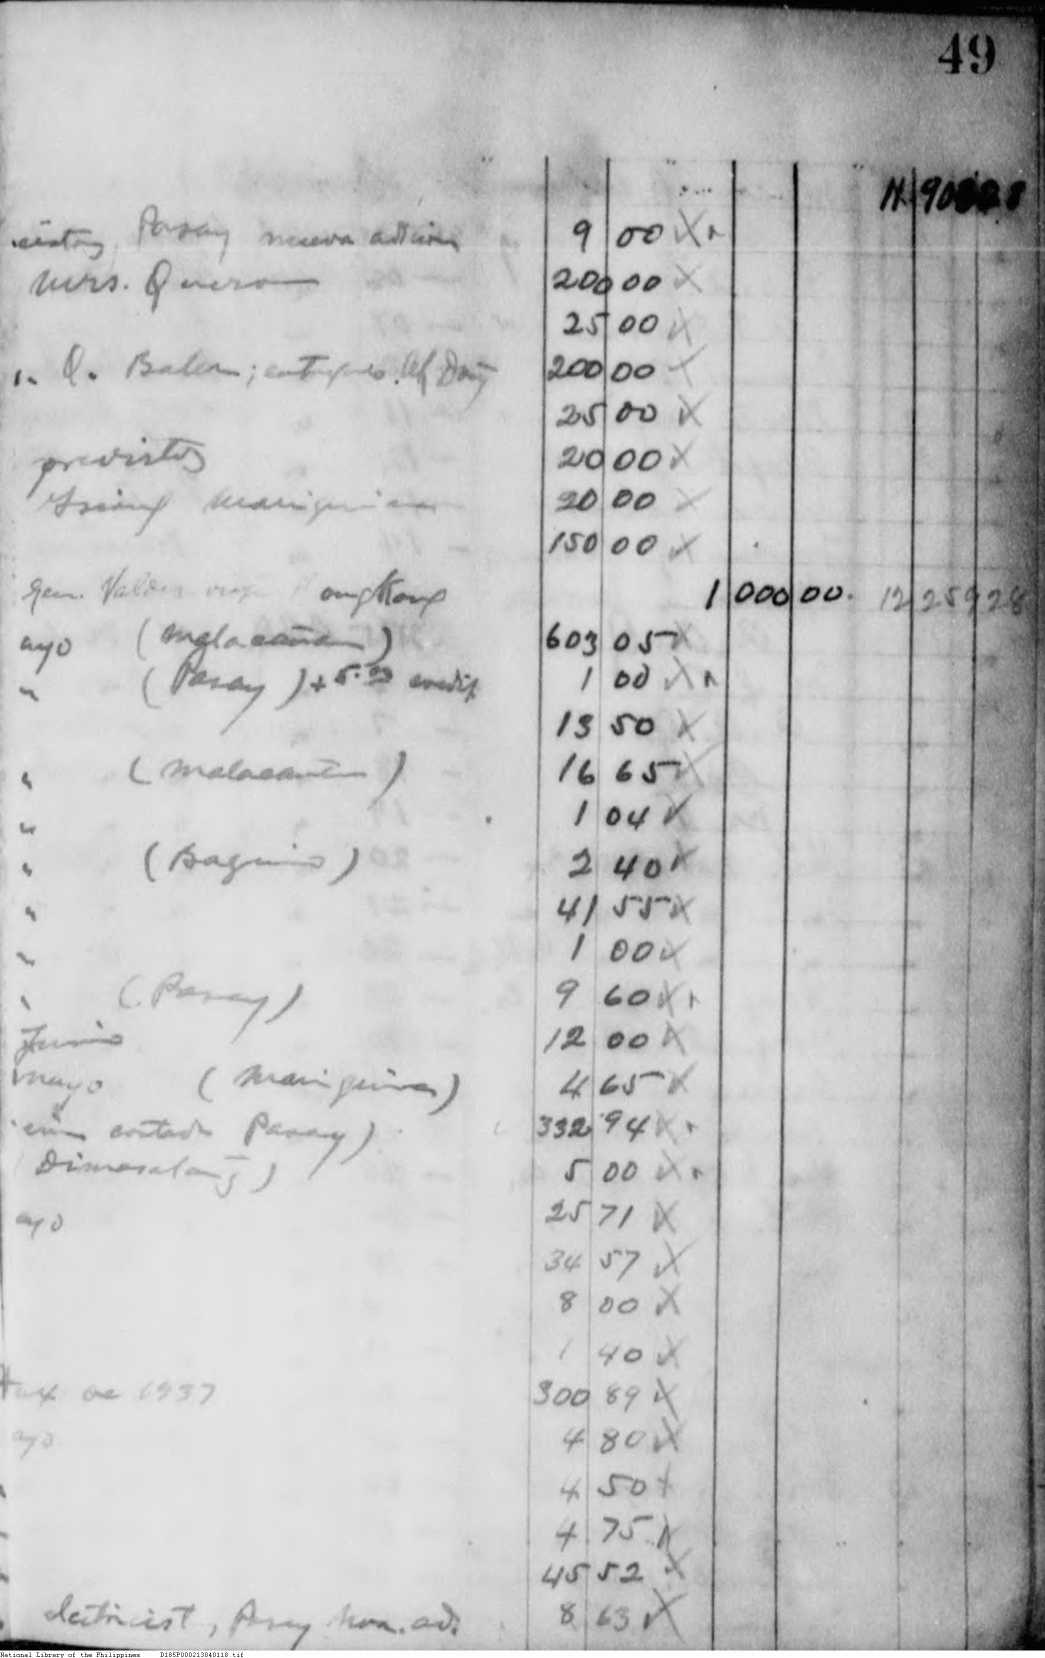 49
Pasay nueva 9 00
Mrs. Quezon 200 00
25 00
Q. Baler; 200 00
25 00
previstos 20 00
20 00
150 00
Gen. Valdes ongKong 1 000 00. 12 259 28
ayo (Malacañan) 603 05
" (Pasay) + 5.00 credit 1 00
13 50
" (Malacañan) 16 65
" 1 04
" (Baguio) 2 40
" 41 55
" 1 00
" (Pasay) 9 60
Junio 12 00
mayo (Mariquina) 4 65
Pasay) 332 94
Dimasalang) 5 00
ayo 25 71
34 57
8 00
1 40
tax de 1937 300 89
ayo 4 80
4 50
4 75
45 52
electricist, Pasay nva. ad. 8 63
National Library of the Philippines D185P000213040118.tif